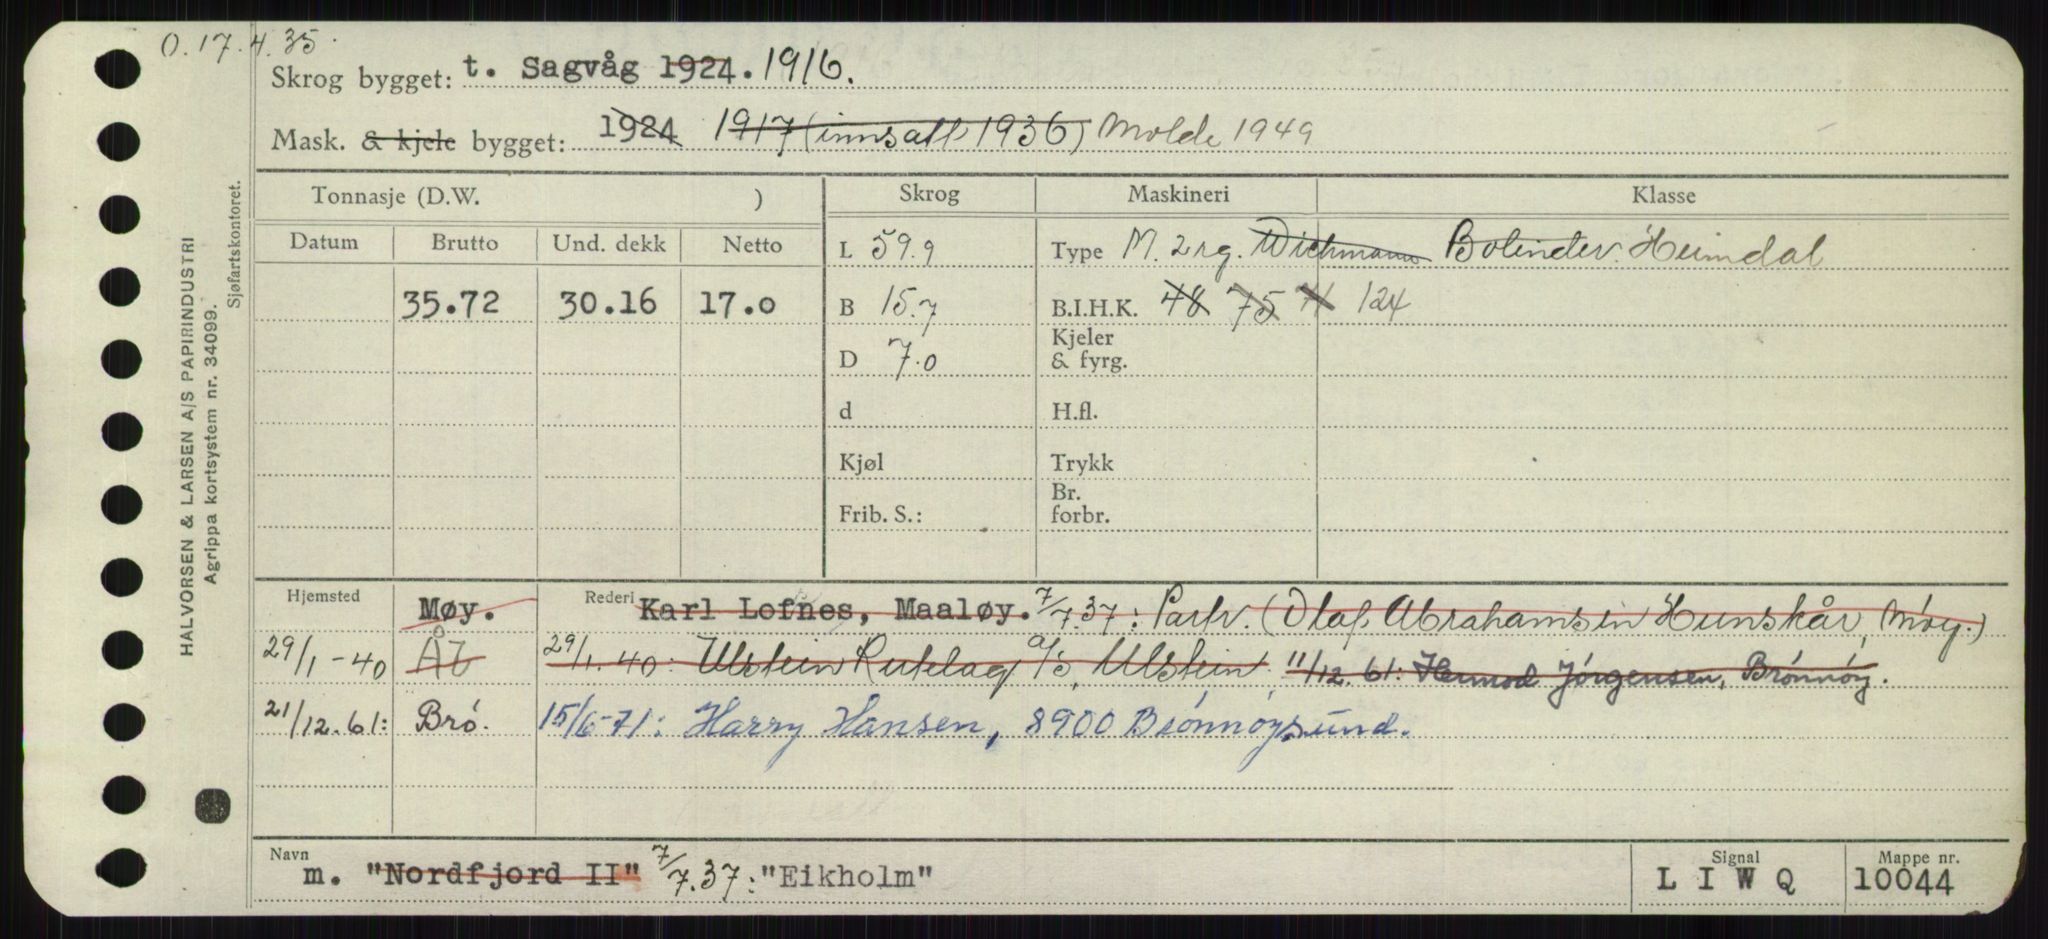 O. 17.4.35.
Skrog bygget: t. Sagvåg 1924. 1916.
Mask. & kjele bygget: 1924 1917 (innsatt 1936) Molde 1949
Tonnasje (D.W. ) Skrog Maskineri Klasse
Datum Brutto Und. dekk Netto L 59.9 Type M. 2 sg. Wichmann Bolinder. Heimdal
35.72 30.16 17.0 B 15.7 B.I.H.K. 48 75 71 124
D 7.0 Kjeler
& fyrg.
d H.fl.
Kjøl Trykk
Frib. S.: Br.
forbr.
Hjemsted Møy. Rederi Karl Lofnes, Maaløy. 7/7.37: Partr. (Olaf Abrahamsen Hunskår, Møy.)
29/1-40 ÅL 29/1.40: Ulstein Rutelag A/S, Ulstein. 11/12.61: Hermod Jörgensen, Brönnöy.
21/12.61: Brö. 15/6-71: Harry Hansen, 8900 Brönnöysund.
Navn m. "Nordfjord II" 7/7.37: "Eikholm" Signal L I W Q Mappe nr. 10044
HALVORSEN & LARSEN A/S PAPIRINDUSTRI
Agrippa kortsystem nr. 34099.
Sjøfartskontoret.